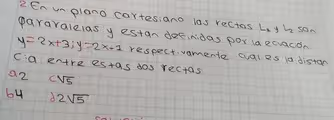 2 En un plano cartesiano las rectas L1 y L2 son
pararalelas y estan definidas por la ecuación
y=2x+3; y=2x-2 respectivamente cual es la distan
cia entre estas dos rectas
a2 c√5
b4 d2√5